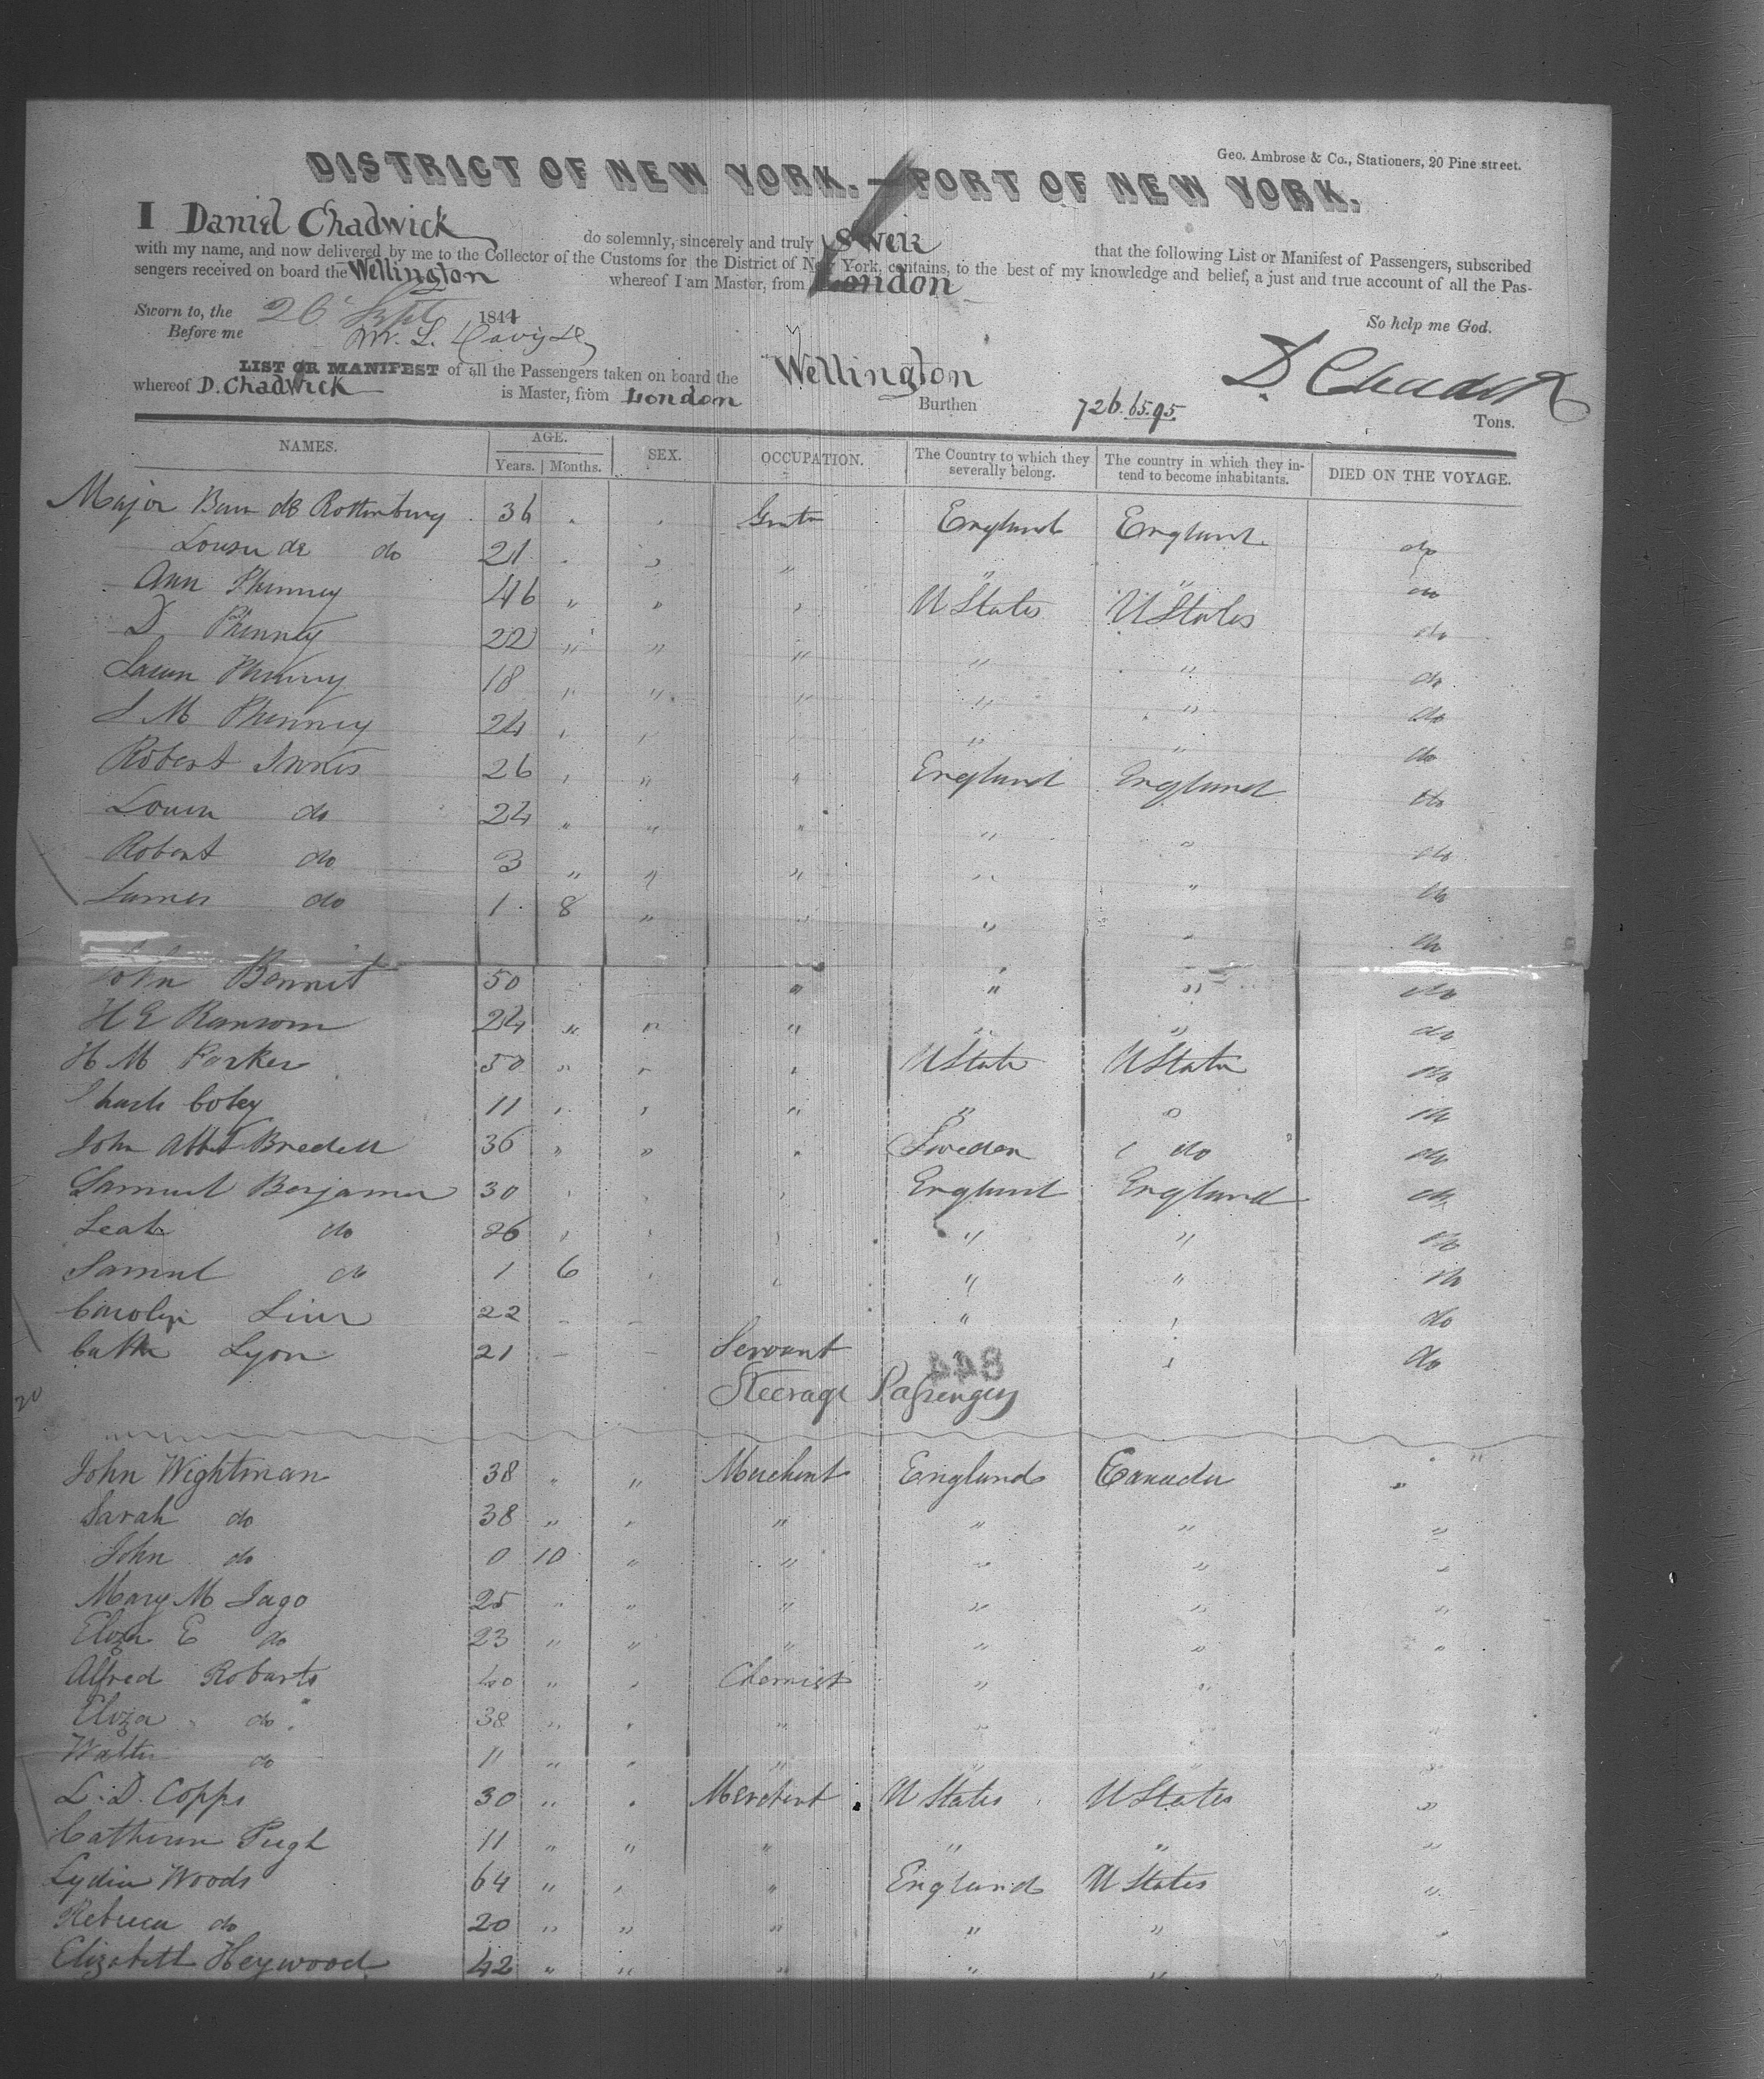 Geo. Ambrose & Co., Stationers, 20 Pine street.
DISTRICT OF NEW YORK.—PORT OF NEW YORK.
I Daniel Chadwick do solemnly, sincerely and truly Swer that the following List or Manifest of Passengers, subscribed
with my name, and now delivered by me to the Collector of the Customs for the District of New York, contains, to the best of my knowledge and belief, a just and true account of all the Pas-
sengers received on board the Wellington whereof I am Master, from London
Sworn to, the 26 Sept 1844 So help me God.
Before me M. L. Davis
D Chadwick
LIST OR MANIFEST of all the Passengers taken on board the Wellington
whereof D. Chadwick is Master, from London Burthen 726.65.95 Tons.
NAMES. AGE. Years. Months. SEX. OCCUPATION. The Country to which they severally belong. The country in which they intend to become inhabitants. DIED ON THE VOYAGE.
Major de Rottenburg 36 " " England England do
de do 21 " " " " " do
Ann Phinney 46 " " " U States U States do
D Phinney 22 " " " " " do
Phinney 18 " " " " " do
S M Phinney 24 " " " " " do
Robert Innes 26 " " " England England do
Louisa do 24 " " " " " do
Robert do 3 " " " " " do
James do 1 8 " " " " do
John Bennit 50 " " " do
H E Ransom 24 " " " " " do
H M Parker 50 " " " U State U States do
Coley 11 " " " " do
John Abbt Bredell 36 " " " Sweden do do
Samuel Benjamin 30 " " " England England do
Leah do 26 " " " " " do
Samul do 1 6 " " " " do
22 - - " " do
Lyon 21 - - Servant " do
448
Steerage Passengers
John Wightman 38 " " Merchant England Canada "
Sarah do 38 " " " " " "
John do 0 10 " " " " "
Mary M Jago 25 " " " " " "
Eliza E do 23 " " " " " "
Alfred Robarts 40 " " Chemist " "
Eliza do 38 " " " " " "
Walter do 11 " " " " " "
L. D. Copps 30 " " Merchant U States U States "
Catherine Pugh 11 " " " " " "
Lydia Woods 64 " " " England U States "
Rebecca do 20 " " " " " "
Elizabeth Heywood 42 " " " " " "